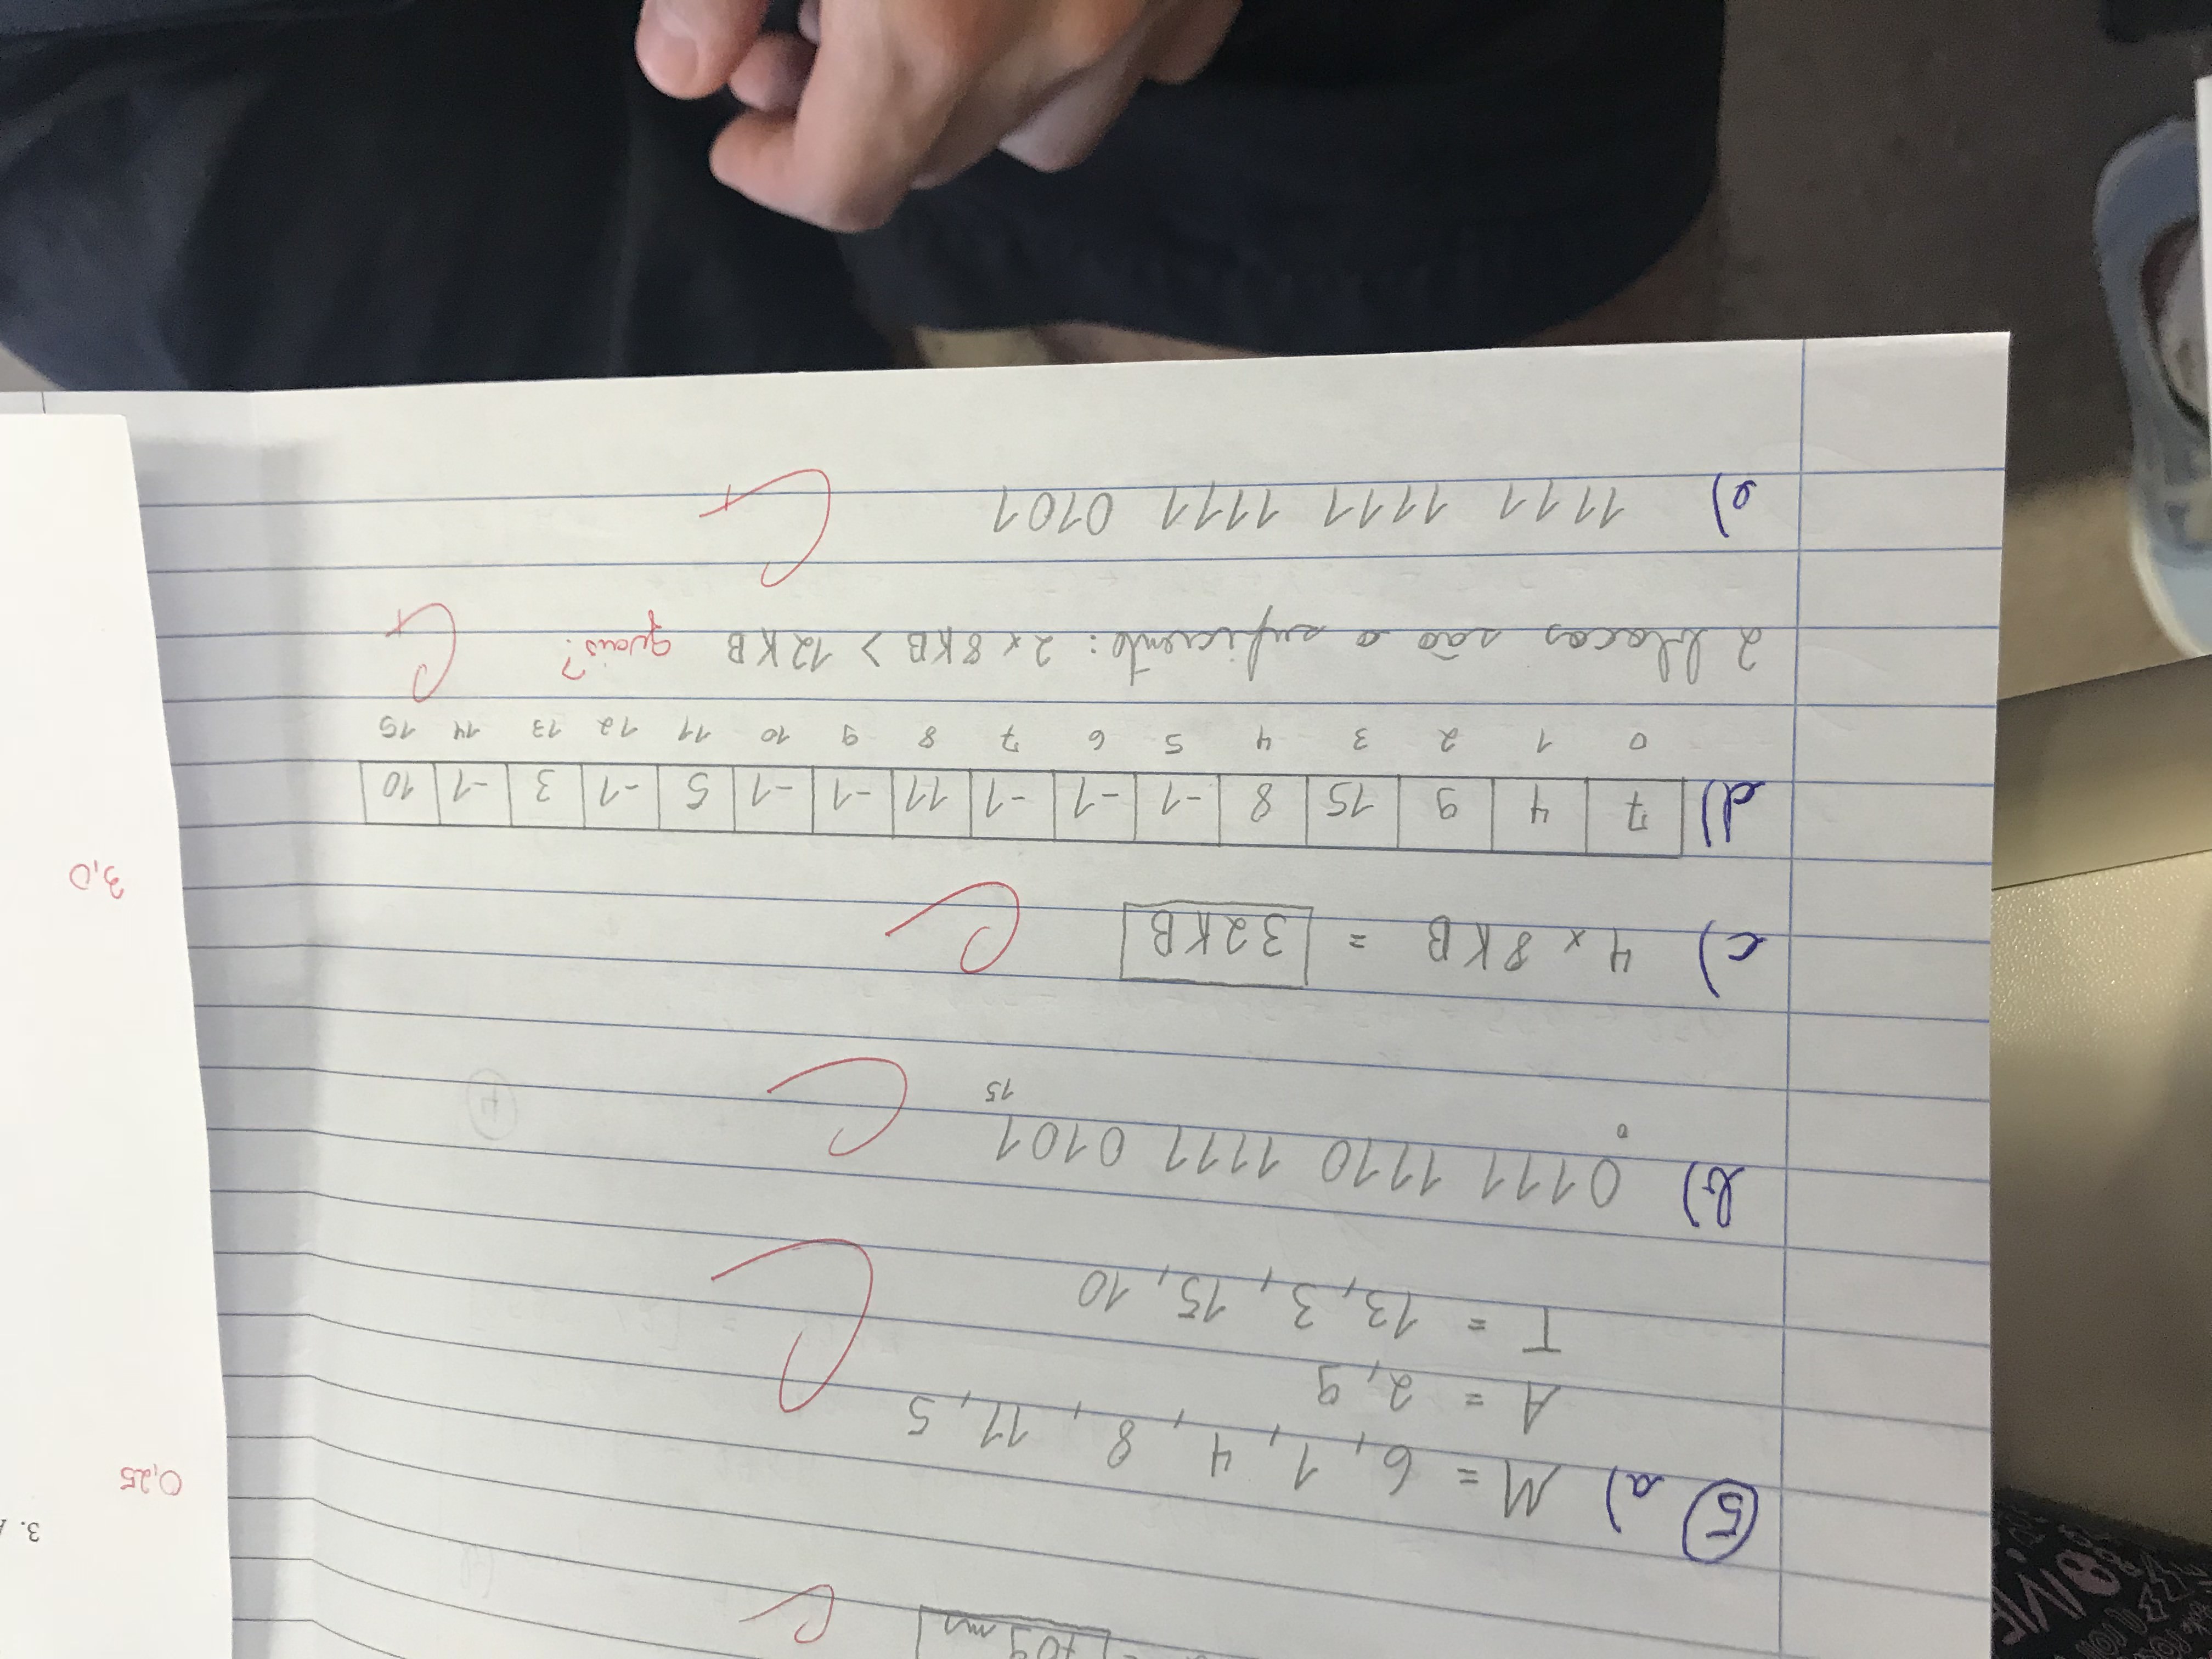 709 ms C
5 a) M = 6, 1, 4, 8, 11, 5
A = 2, 9
T = 13, 3, 15, 10
C
b) 0111 1110 1111 0101 C
0 15
c) 4 x 8KB = 32KB C
d) 7 4 9 15 8 -1 -1 -1 11 -1 -1 5 -1 3 -1 10
0 1 2 3 4 5 6 7 8 9 10 11 12 13 14 15
2 blocos são o suficiente: 2 x 8KB > 12KB quais? C
e) 1111 1111 1111 0101 C
3.
0,25
3,0